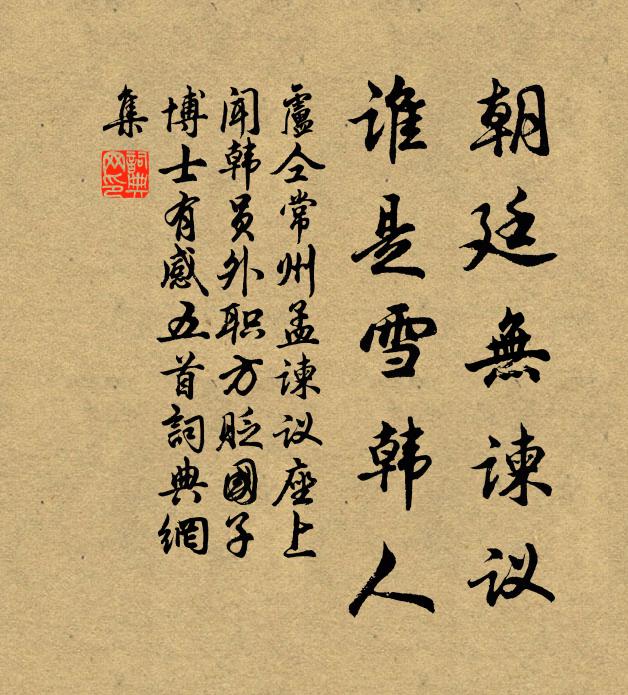 朝廷無諫议
谁是雪韩人
盧仝常州孟諫议座上
闻韩员外职方貶國子
博士有感五首詞典網
集
詞典网印